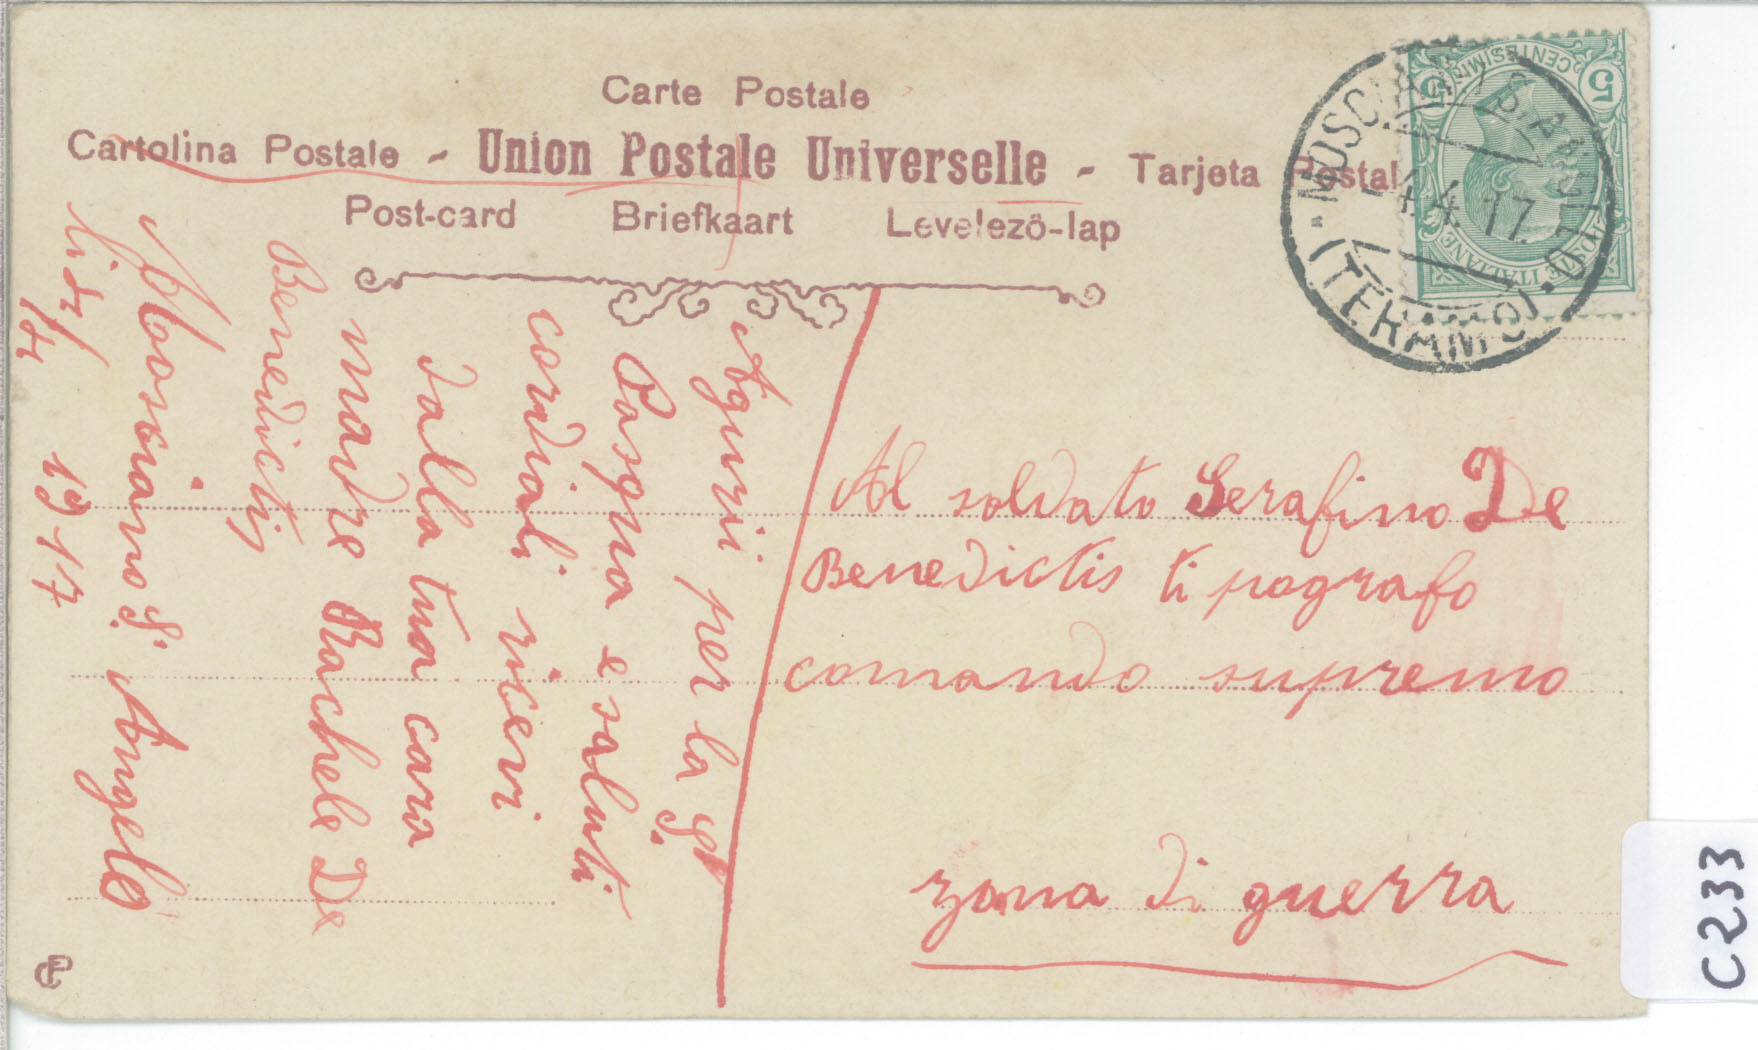 Carte Postale
Cartolina Postale - Union Postale Universelle - Tarjeta Postal
Post-card Briefkaart Levelező-lap
5 CENTESIMI 5
POSTE ITALIANE
MOSCIANO S. ANGELO
-4.4.17
(TERAMO)
Aguri per la S.
Pasqua e saluti
cordiali ricevi
dalla tua cara
madre Rachele De
Benedictis
Mosciano S. Angelo
li 4/4 1917
Al soldato Serafino De
Benedictis tipografo
comando supremo
zona di guerra
C233